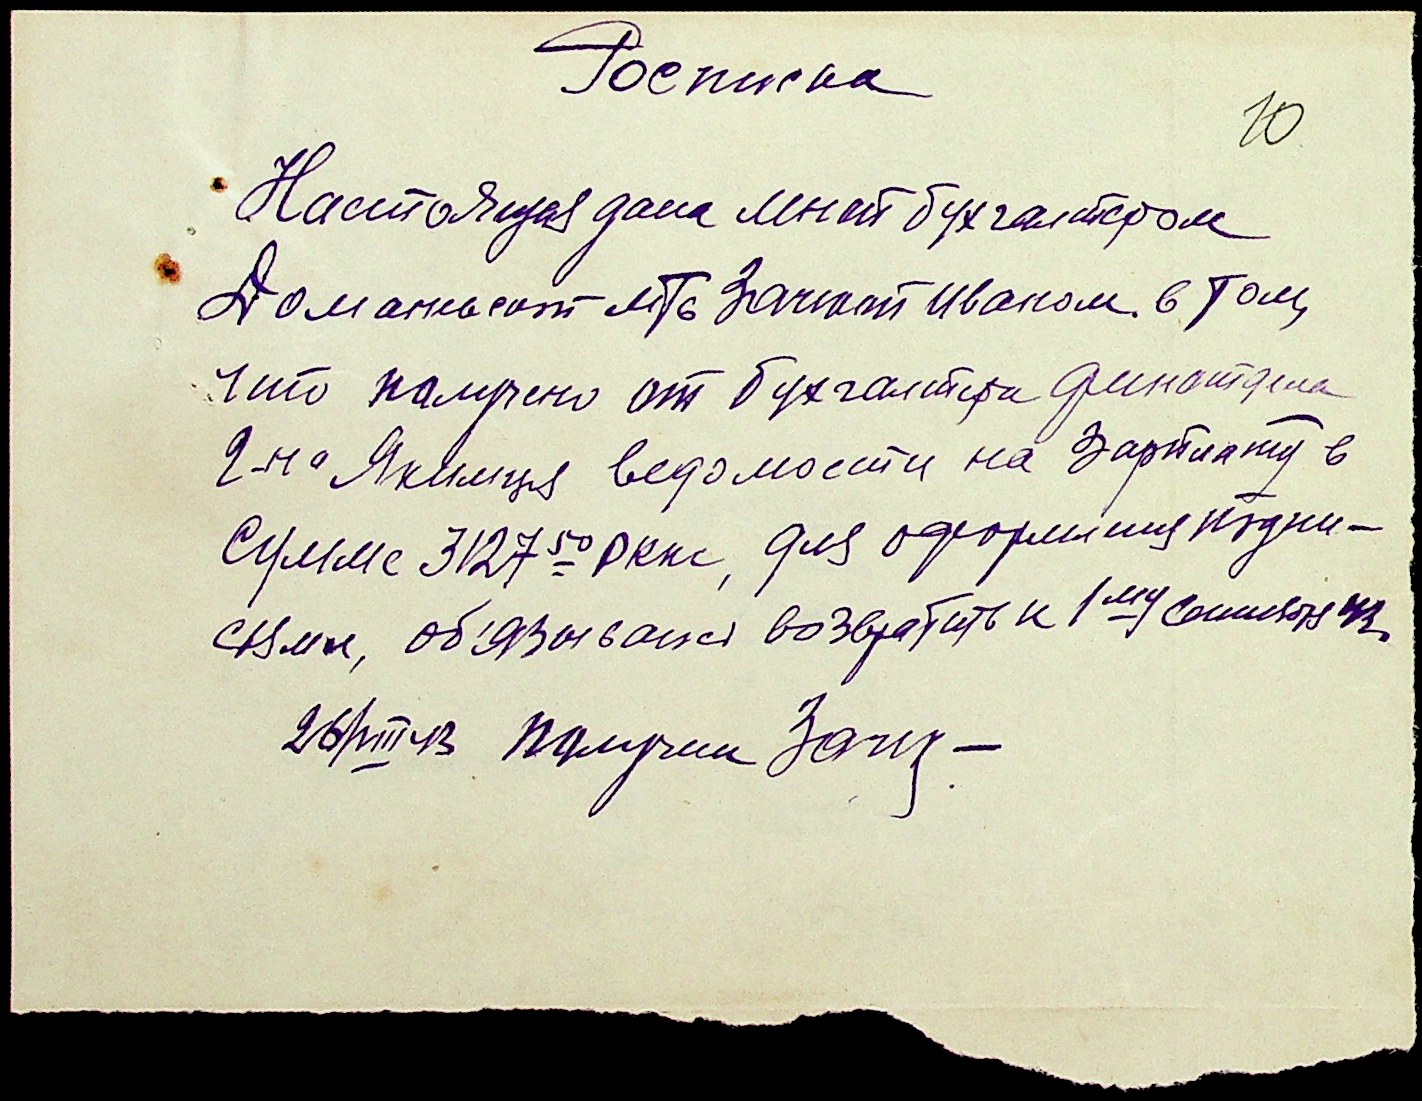 Росписка
10
Настоящая дана мной бухгалтером
МТС Зачкой Иваном. в том,
что получено от бухгалтера финотдела
г-на Якимця ведомости на зарплату в
сумме 3127 50 для оформления подпи-
сями, обязываюсь возвратить к 1му сентября 43.
26/VIII-43 получил Зачк-